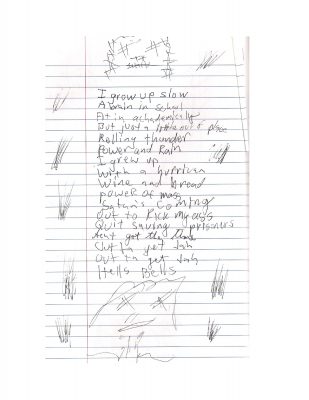 I grow up slow
A brain in school
Fit in achademically
But just a little out of place
Rolling thunder
Power and Rain
I grew up
with a
Wine and bread
power of mass
Satan's coming
out to kick my ass
Quit saving prisoners
Aint got the time
Out to get
Out to get
Hells Bells